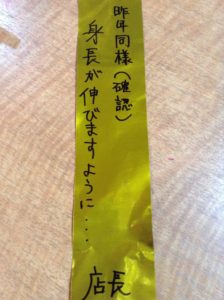 昨年同様(確認)
身長が伸びますように....
店長